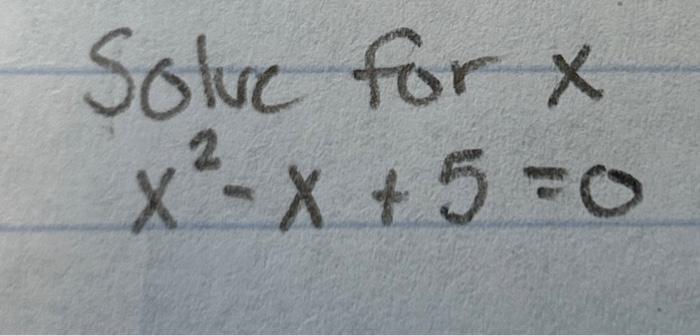 Solve for x
x² - x + 5 = 0